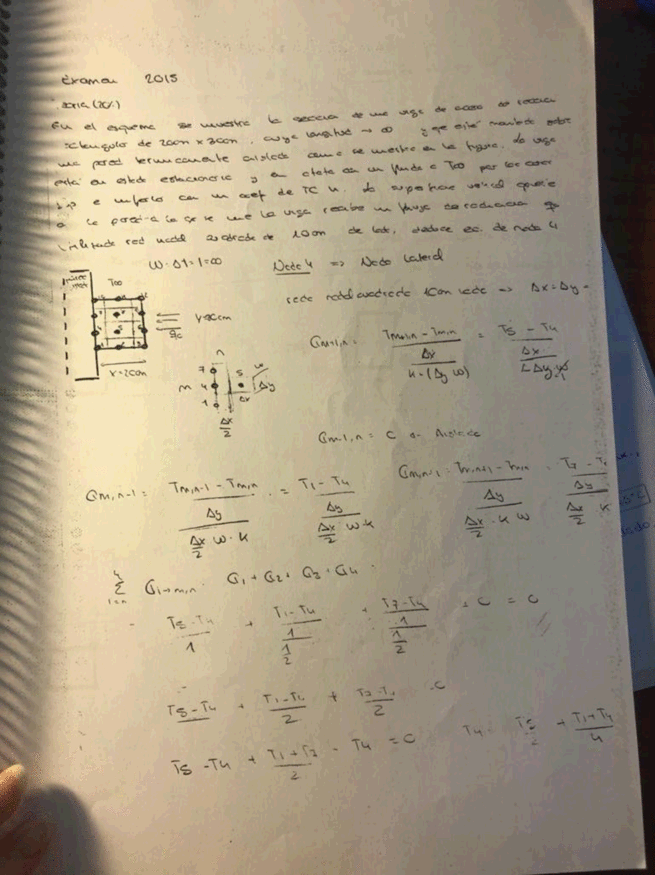 Examen 2015
(20%)
En el esquema se muestra la sección de una viga de acero de sección
rectangular de 20cm x 30cm, cuya longitud → ∞ y que está montada sobre
una pared térmicamente aislada como se muestra en la figura. La viga
está en estado estacionario y en contacto con un fluido a T∞ por las caras
e inferior con un coef de TC h. La superficie vertical opuesta
a la pared a la que se une la viga recibe un flujo de radiación
red nodal cuadrada de 10cm de lado, deduce ec. de nodo 4
Nodo 4 => Nodo lateral
T∞
red nodal cuadrada 10cm lado => Δx = Δy =
Y=30cm
X=20cm
n
m 7 4 1 5 w Δy
Δx
Δx/2
Qm+1,n = (Tm+1,n - Tm,n) / (Δx / k·(Δy w)) = (T5 - T4) / (Δx / Δy w)
Qm-1,n = 0 Aislado
Qm,n-1 = (Tm,n-1 - Tm,n) / (Δy / (Δx/2 w·k)) = (T1 - T4) / (Δy / (Δx/2 w·k))
Qm,n+1 = (Tm,n+1 - Tm,n) / (Δy / (Δx/2 · k w)) = (T7 - T) / (Δy / (Δx/2 k))
Σ Qi→m,n = Q1 + Q2 + Q3 + Q4 =
(T5 - T4) / 1 + (T1 - T4) / (1 / (1/2)) + (T7 - T4) / (1 / (1/2)) + 0 = 0
T5 - T4 + (T1 - T4) / 2 + (T7 - T4) / 2 = 0
T5 - T4 + (T1 + T7) / 2 - T4 = 0
T4 = T5 / 2 + (T1 + T7) / 4